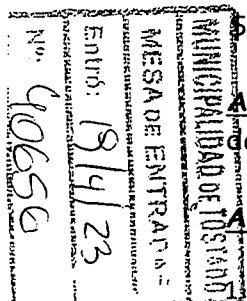 MUNICIPALIDAD DE TOSTADO
MESA DE ENTRADAS
Entró: 19/4/23
Nº. 40656